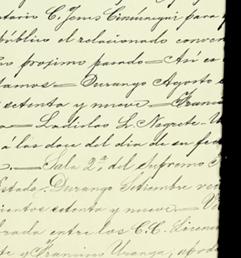 tario C. Jesus Cincúnegui para q
público el relacionado conven
io projimo pasado = Así co
tamos = Durango Agosto
setenta y nueve =
= Ladislao L. Negrete
á las doce del dia de su fec
= Sala 2ª del Supremo
Estado, Durango Setiembre
cientos setenta y nueve =
brada entre los C.C. Licen
te y Francisco Uranga, apod